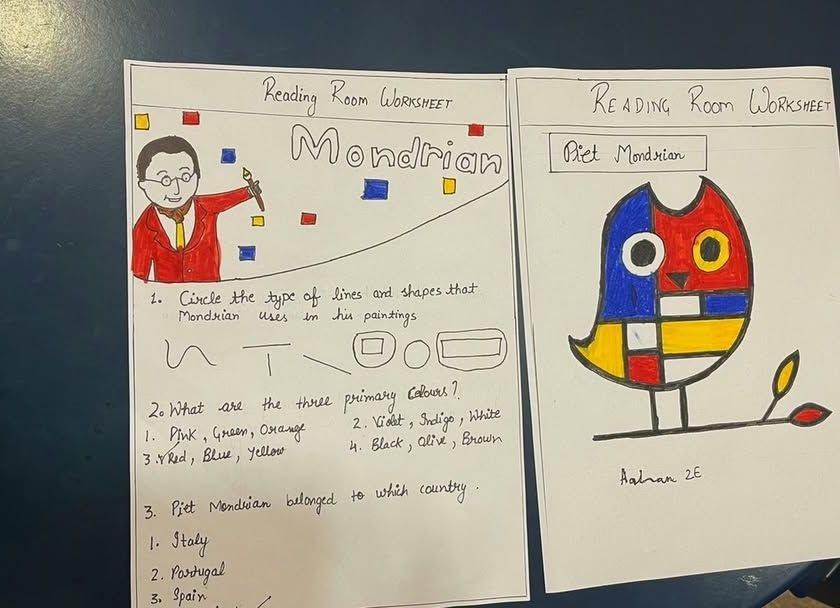 Reading Room WORKSHEET
Mondrian
1. Circle the type of lines and shapes that
Mondrian uses in his paintings
2. What are the three primary Colours?
1. Pink, Green, Orange
2. Violet, Indigo, White
3. Red, Blue, Yellow
4. Black, Olive, Brown
3. Piet Mondrian belonged to which country.
1. Italy
2. Portugal
3. Spain
READING ROOM WORKSHEET
Piet Mondrian
2E